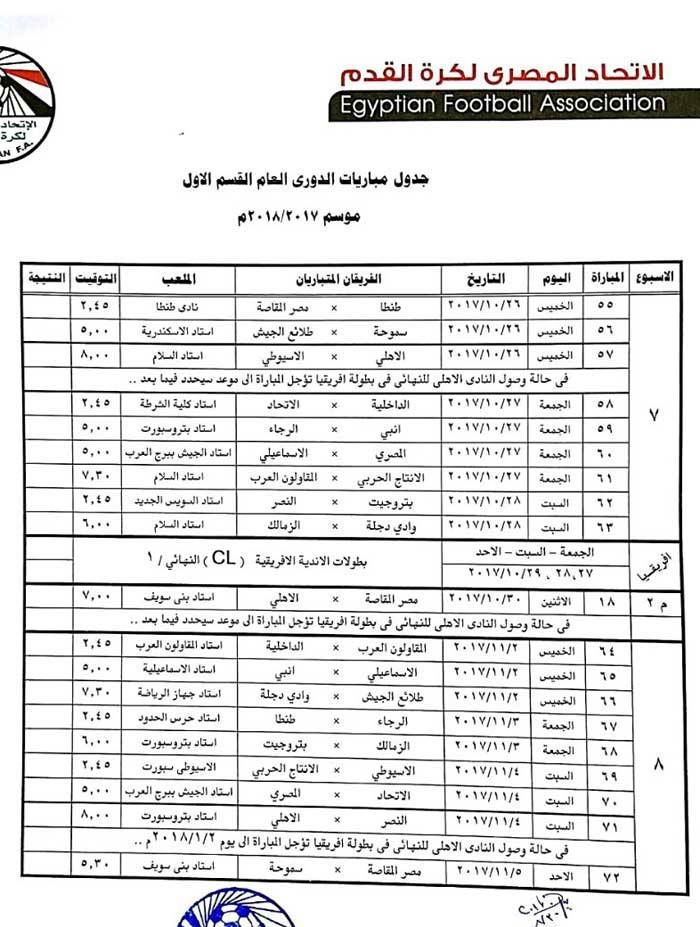 الاتحاد المصرى لكرة القدم
Egyptian Football Association
الإتحاد
لكرة
AN F.A.
جدول مباريات الدورى العام القسم الاول
موسم ٢٠١٨/٢٠١٧م
الاسبوع المباراة اليوم التاريخ الفريقان المتباريان الملعب التوقيت النتيجة
٥٥ الخميس ٢٠١٧/١٠/٢٦ طنطا × مصر المقاصة نادى طنطا ٢,٤٥
٥٦ الخميس ٢٠١٧/١٠/٢٦ سموحة × طلائع الجيش استاد الاسكندرية ٥,٠٠
٥٧ الخميس ٢٠١٧/١٠/٢٦ الاهلي × الاسيوطي استاد السلام ٨,٠٠
فى حالة وصول النادى الاهلى للنهائى فى بطولة افريقيا تؤجل المباراة الى موعد سيحدد فيما بعد ..
٧ ٥٨ الجمعة ٢٠١٧/١٠/٢٧ الداخلية × الاتحاد استاد كلية الشرطة ٢,٤٥
٥٩ الجمعة ٢٠١٧/١٠/٢٧ انبي × الرجاء استاد بتروسبورت ٥,٠٠
٦٠ الجمعة ٢٠١٧/١٠/٢٧ المصري × الاسماعيلي استاد الجيش ببرج العرب ٥,٠٠
٦١ الجمعة ٢٠١٧/١٠/٢٧ الانتاج الحربي × المقاولون العرب استاد السلام ٧,٣٠
٦٢ السبت ٢٠١٧/١٠/٢٨ بتروجيت × النصر استاد السويس الجديد ٢,٤٥
٦٣ السبت ٢٠١٧/١٠/٢٨ وادي دجلة × الزمالك استاد السلام ٦,٠٠
افريقيا الجمعة – السبت – الاحد بطولات الاندية الافريقية ( CL ) النهائي / ١
٢٨,٢٧ , ٢٠١٧/١٠/٢٩
م ٢ ١٨ الاثنين ٢٠١٧/١٠/٣٠ مصر المقاصة × الاهلي استاد بنى سويف ٧,٠٠
فى حالة وصول النادى الاهلى للنهائى فى بطولة افريقيا تؤجل المباراة الى موعد سيحدد فيما بعد ..
٦٤ الخميس ٢٠١٧/١١/٢ المقاولون العرب × الداخلية استاد المقاولون العرب ٢,٤٥
٦٥ الخميس ٢٠١٧/١١/٢ الاسماعيلي × انبي استاد الاسماعيلية ٥,٠٠
٦٦ الخميس ٢٠١٧/١١/٢ طلائع الجيش × وادي دجلة استاد جهاز الرياضة ٧,٣٠
٦٧ الجمعة ٢٠١٧/١١/٣ الرجاء × طنطا استاد حرس الحدود ٢,٤٥
٦٨ الجمعة ٢٠١٧/١١/٣ الزمالك × بتروجيت استاد بتروسبورت ٦,٠٠
٨ ٦٩ السبت ٢٠١٧/١١/٤ الاسيوطي × الانتاج الحربي الاسيوطى سبورت ٢,٤٥
٧٠ السبت ٢٠١٧/١١/٤ الاتحاد × المصري استاد الجيش ببرج العرب ٥,٠٠
٧١ السبت ٢٠١٧/١١/٤ النصر × الاهلي استاد بتروسبورت ٨,٠٠
فى حالة وصول النادى الاهلى للنهائى فى بطولة افريقيا تؤجل المباراة الى يوم ٢٠١٨/١/٢م ..
٧٢ الاحد ٢٠١٧/١١/٥ مصر المقاصة × سموحة استاد بنى سويف ٥,٣٠